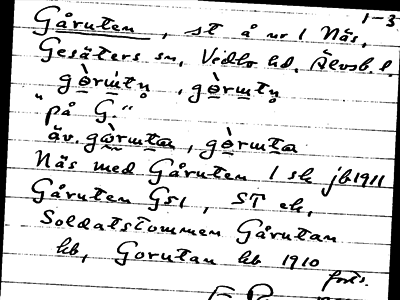 1-3
Gåruten, st å nr 1 Näs,
Gesäters sn, Vedbo hd. Älvsb. l.
"på G."
äv.
Näs med Gåruten 1 sk jb 1911
Gåruten Gs1, ST ek,
Soldatstommen Gårutan
kb, Gorutan kb 1910
forts.